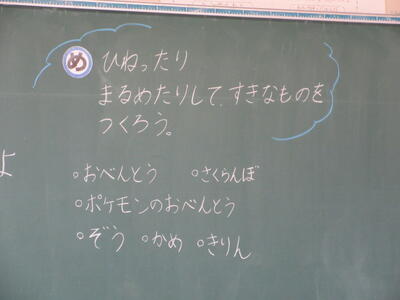 め ひねったり
まるめたりして、すきなものを
つくろう。
。おべんとう 。さくらんぼ
。ポケモンのおべんとう
。ぞう 。かめ 。きりん
よ